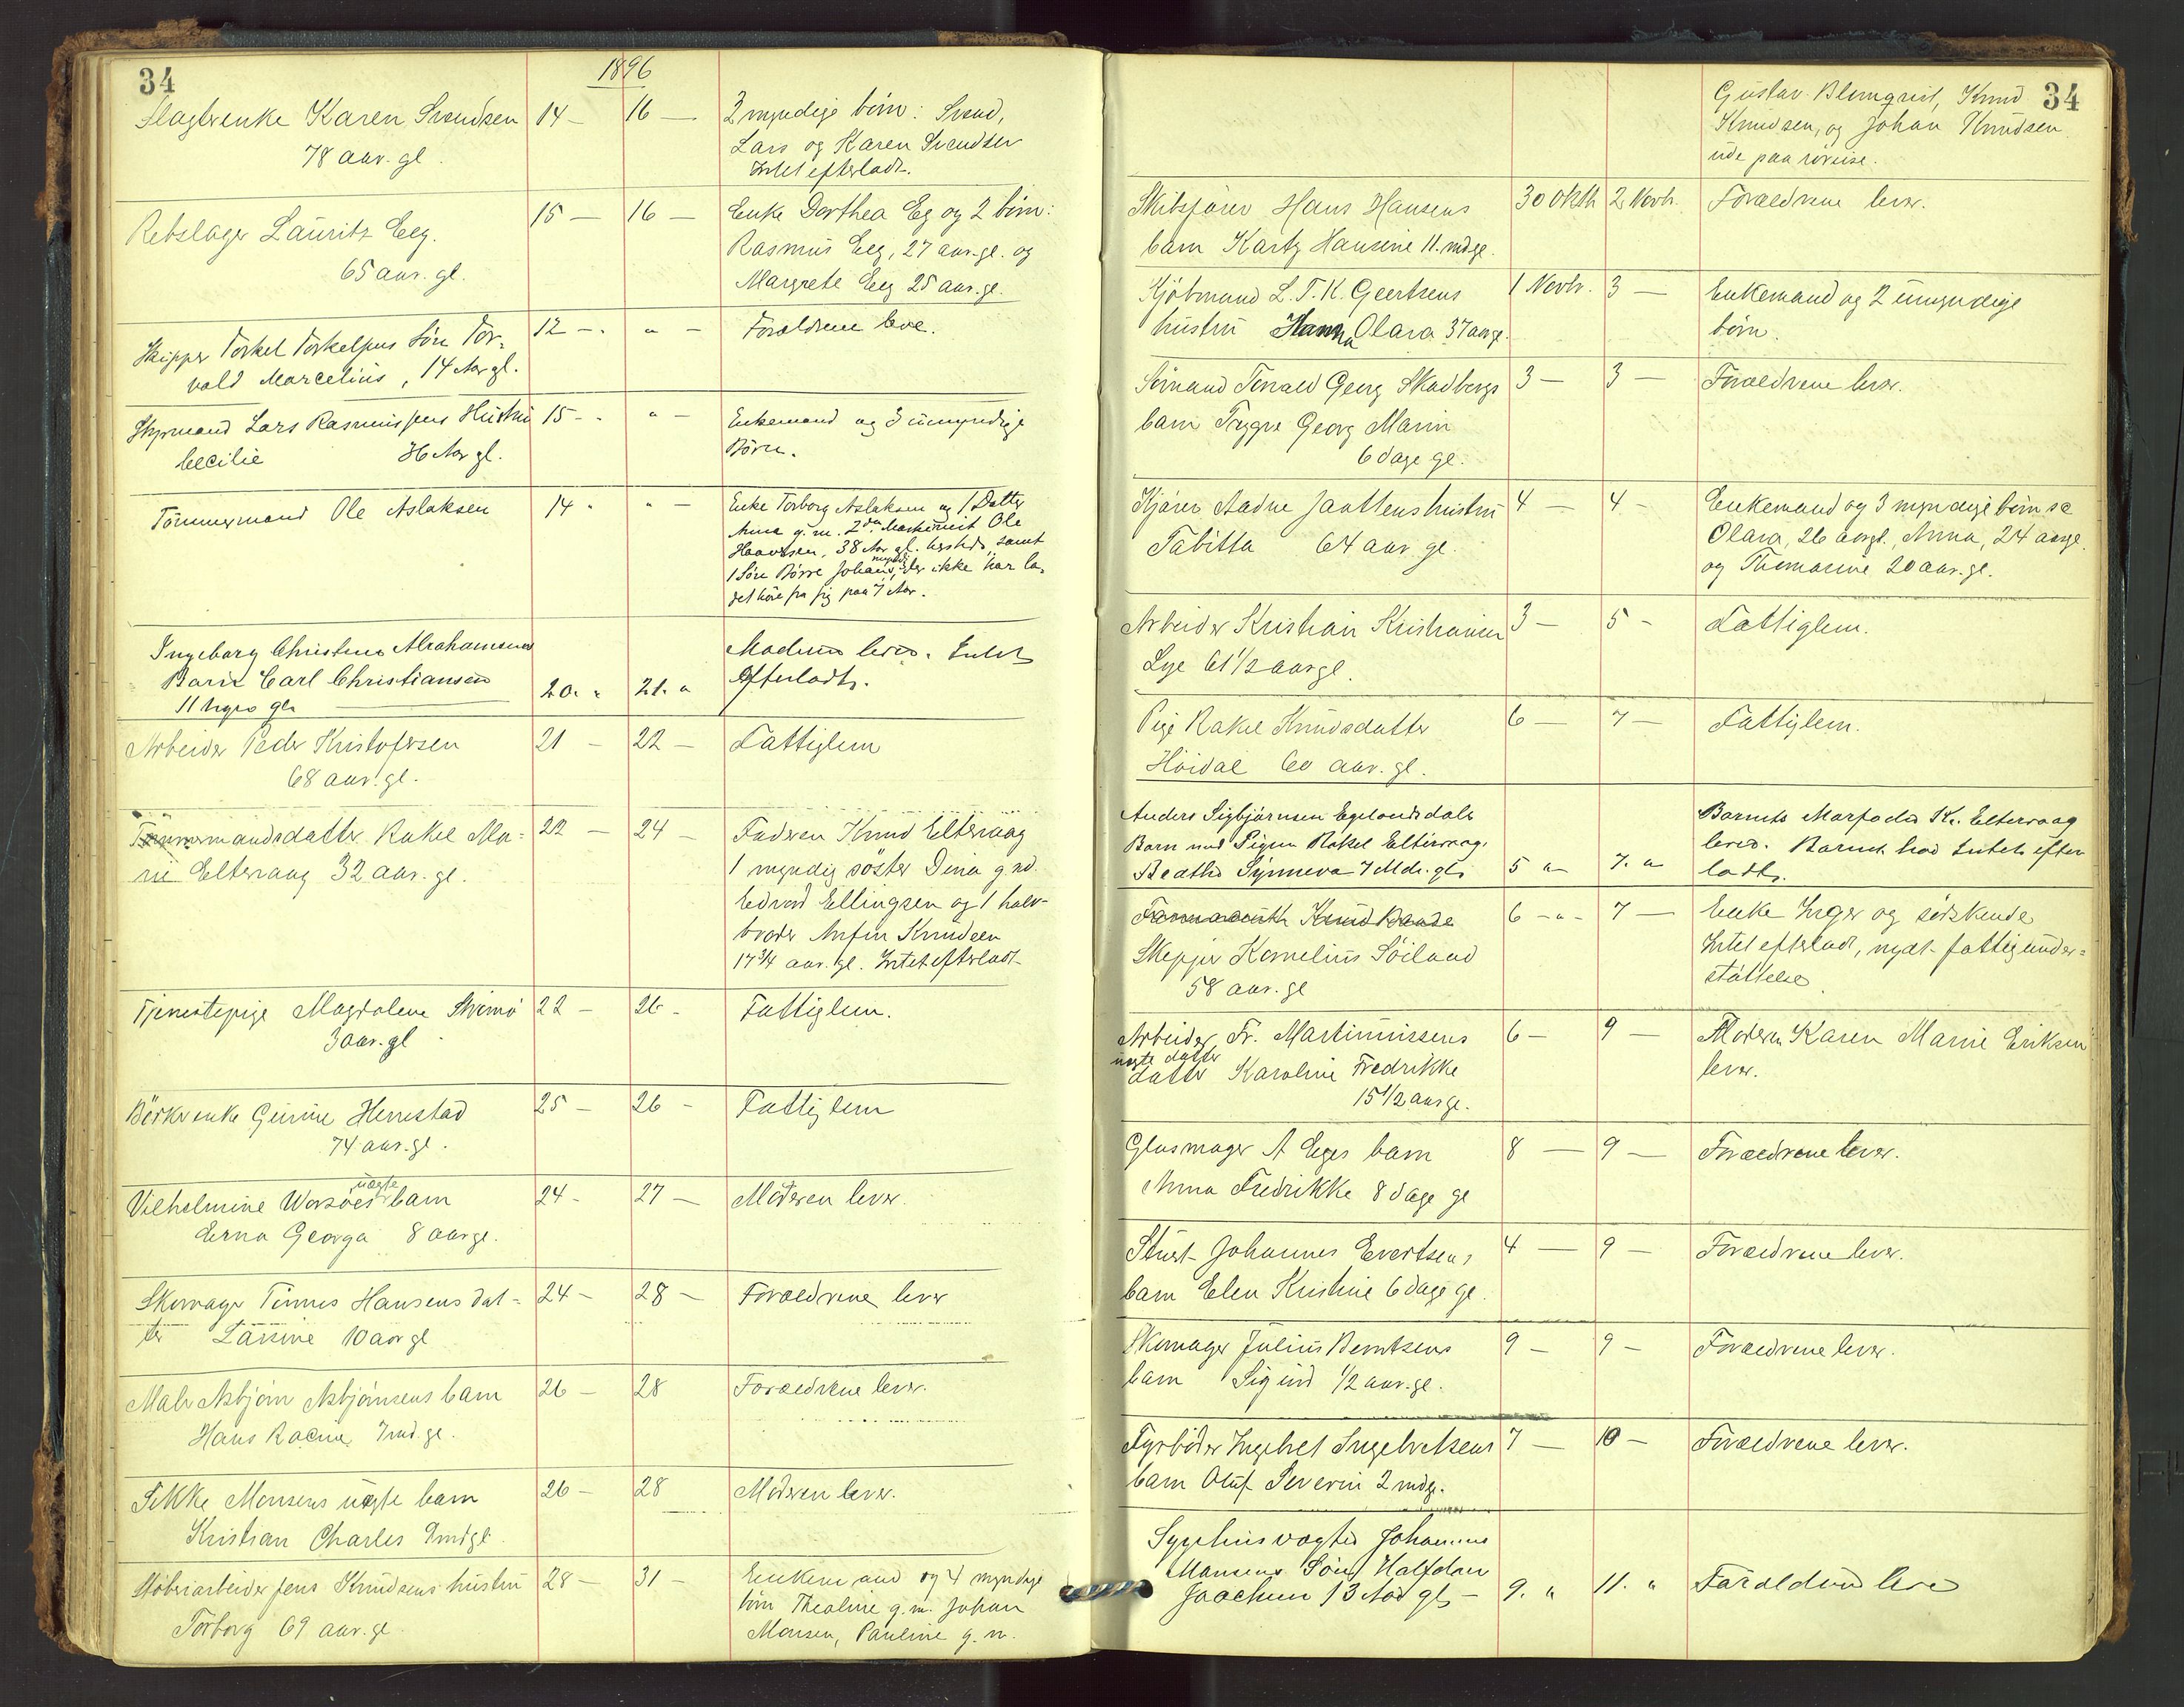 34
1896
Slagterenke Karen Svendsen 14 — 16 — 3 myndige börn: Svend,
78 aar. gl. Lars og Karen Svendsen
Intet efterladt.
Rebslager Lauritz Eeg. 15 — 16 — Enke Dorthea Eg og 2 börn:
65 aar. gl. Rasmus Eeg, 27 aar. gl. og
Margrete Eeg 25 aar. gl.
Skipper Torkel Torkelsens Sön Tor- 12 — " — Forældrene leve.
vald Marcelius, 14 Aar gl.
Styrmand Lars Rasmussens Hustru 15 - " — Enkemand og 3 umyndige
Cecilie 36 Aar gl. Börn.
Tömmermand Ole Aslaksen 14 " " — Enke Torborg Aslaksen og 1 Datter
Anna g. m. 2den Maskinist Ole
Haavesen, 38 Aar gl. hersteds, samt
1 Sön Börre Johan, myndig, der ikke har la-
det höre fra sig paa 7 Aar.
Ingeborg Christine Abrahamsens
Barn Carl Christiansen 20. " 21. " Moderen lever. Intet
11 Uger gl. Efterladt.
Arbeider Peder Kristofersen 21 — 22 — Fattiglem
68 aar. gl.
Tömmermandsdatter Rakel Ma- 22 — 24 — Faderen Knud Eltervaag
rie Eltervaag 32 aar. gl. 1 myndig söster Dina g. m.
Edvard Ellingsen og 1 halv-
broder Anfin Knudsen
17 3/4 aar. gl. Intet efterladt
Tjenestepige Magdalene 22 — 26 - Fattiglem.
3 aar. gl
enke Gurine Herrestad 25 — 26 - Fattiglem
74 aar. gl.
Vilhelmine Worsöes uægte barn 24 - 27 — Moderen lever.
Erna Georga 8 aar gl.
Skomager Tinnes Hansens dat- 24 — 28 — Forældrene lever
ter Larsine 10 aar gl
Maler Asbjörn Asbjörnsens barn 26 — 28 Forældrene lever.
Hans 7 md. gl.
Monsens uægte barn 26 — 28 Moderen lever.
Kristian Charles 9 md gl.
Støberiarbeider Jens Knudsens hustru 28 — 31 — Enkemand og 4 myndige
Torborg 69 aar. gl. börn Thealine g. m. Johan
Monsen, Pauline g. m.
34
Gustav Blomqvist, Knud
Knudsen, og Johan Knudsen
ude paa söreise.
Skibsförer Hans Hansens 30 Oktb 2 Novb. Forældrene lever.
barn Hansine 11. md gl.
Kjöbmand L. T. K. Geertsens 1 Novb. 3 — Enkemand og 2 umyndige
hustru Hanna Olava 37 aar gl. börn.
Sömand Torvald Georg Skadbergs 3 — 3 — Forældrene lever.
barn Trygve Georg Marin
6 dage gl.
Kjörer Aadne Jaattens hustru 4 — 4 - Enkemand og 3 myndige börn
Tabitta 64 aar. gl. Olava, 26 aar gl., Anna, 24 aar gl.
og Thomasine 20 aar. gl.
Arbeider Kristian Kristiansen 3 — 5 - Fattiglem.
Lye 61 1/2 aar gl.
Pige Rakel Knudsdatter 6 — 7 — Fattiglem.
Höidal 60 aar. gl.
Anders Sigbjörnsen Egelandsdals Barnets Morfader Kn. Eltervaag
Barn med Pigen Rakel Eltervaag. lever. Barnet har Intet efter
Beathe Synneva 7 Mdr. gl. 5 " 7. " ladt.
Knud 6 - " - 7 — Enke Inger og sødskende
Skipper Kornelius Söiland Intet efterladt, nydt fattigunder-
58 aar. gl støttelse.
Arbeider Fr. Martinussens 6 — 9 — Moderen Karen Marie Eriksen
uægte datter lever.
datter Karoline Fredrikke
15 1/2 aar gl.
Glasmager A Eges barn 8 — 9 — Forældrene lever.
Anna Fredrikke 8 dage gl
Stuert Johannes Evertsens 4 — 9 — Forældrene lever.
barn Elen Kristine 6 dage gl.
Skomager Julius Berntsens 9 — 9 — Forældrene lever.
barn Sigurd 1/2 aar. gl.
Fyrböder Ingebret Ingebretsens 7 — 10 — Forældrene lever.
barn Oluf Severin 2 md gl.
Sygehusvogter Johannes
Monsens Sön Halfdan
Joachim 13 Aar gl. — 9. " 11. " Forældrene lever